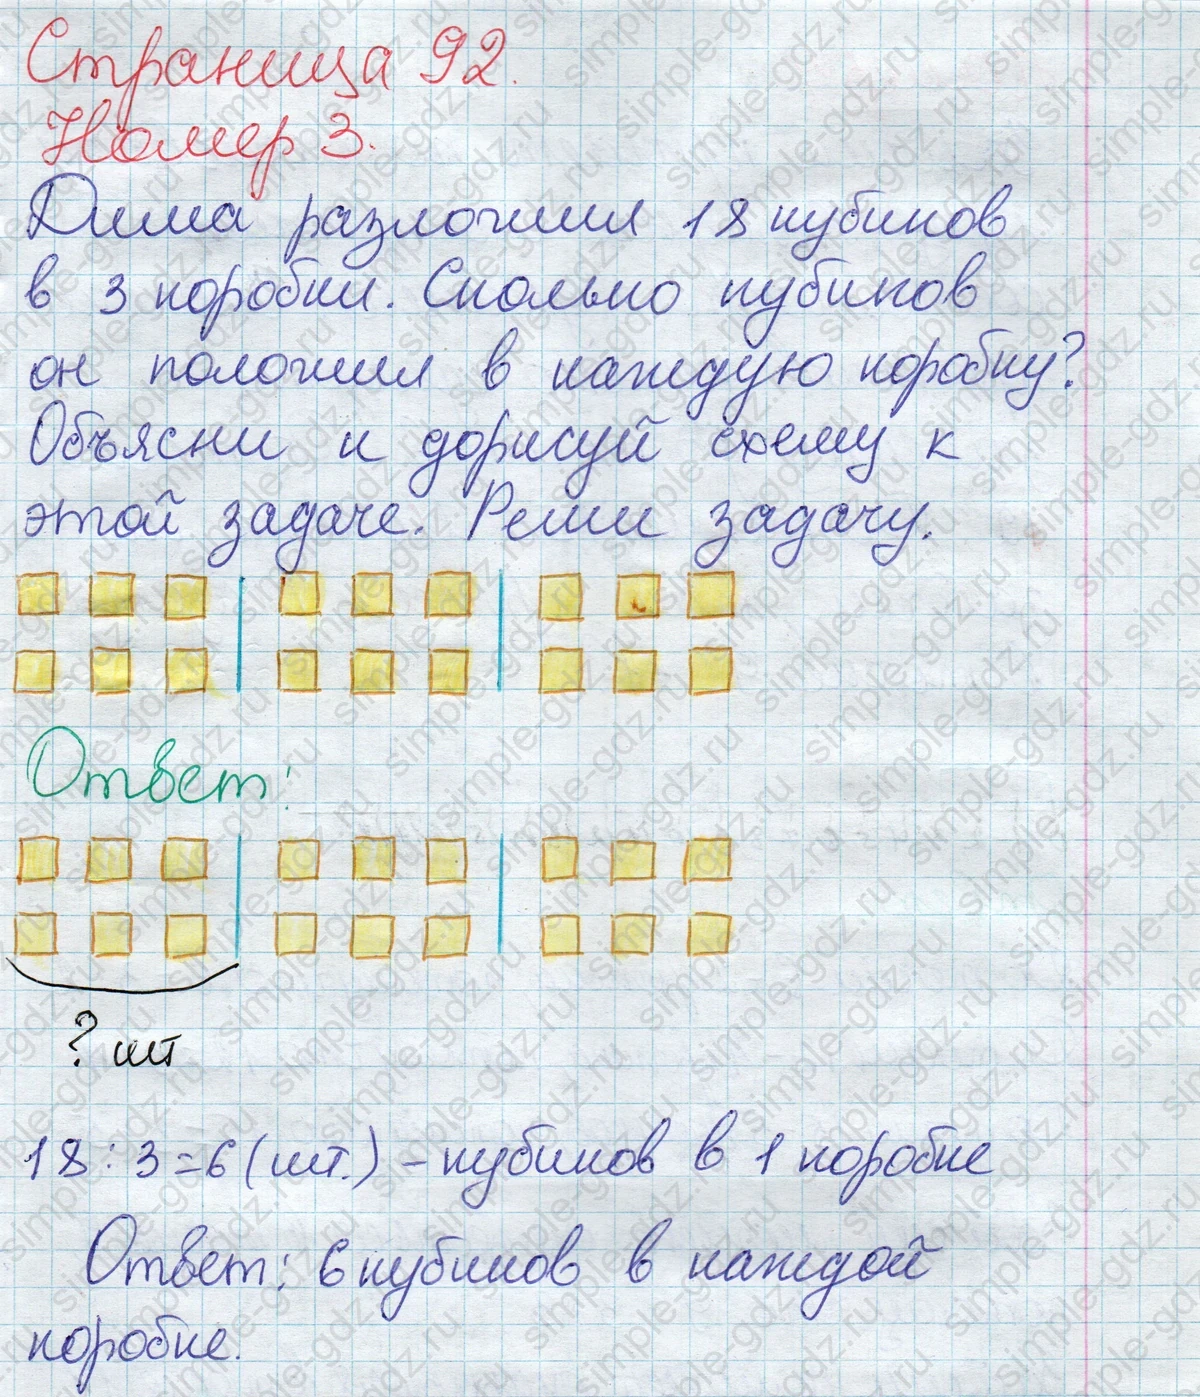 Страница 92.
Номер 3.
Дима разложил 18 кубиков
в 3 коробки. Сколько кубиков
он положил в каждую коробку?
Объясни и дорисуй схему к
этой задаче. Реши задачу.
Ответ:
? шт
18:3=6(шт.) - кубиков в 1 коробке
Ответ: 6 кубиков в каждой
коробке.
simple-gdz.ru